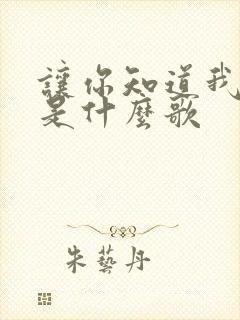 讓你知道我
是什麼歌
朱藝丹